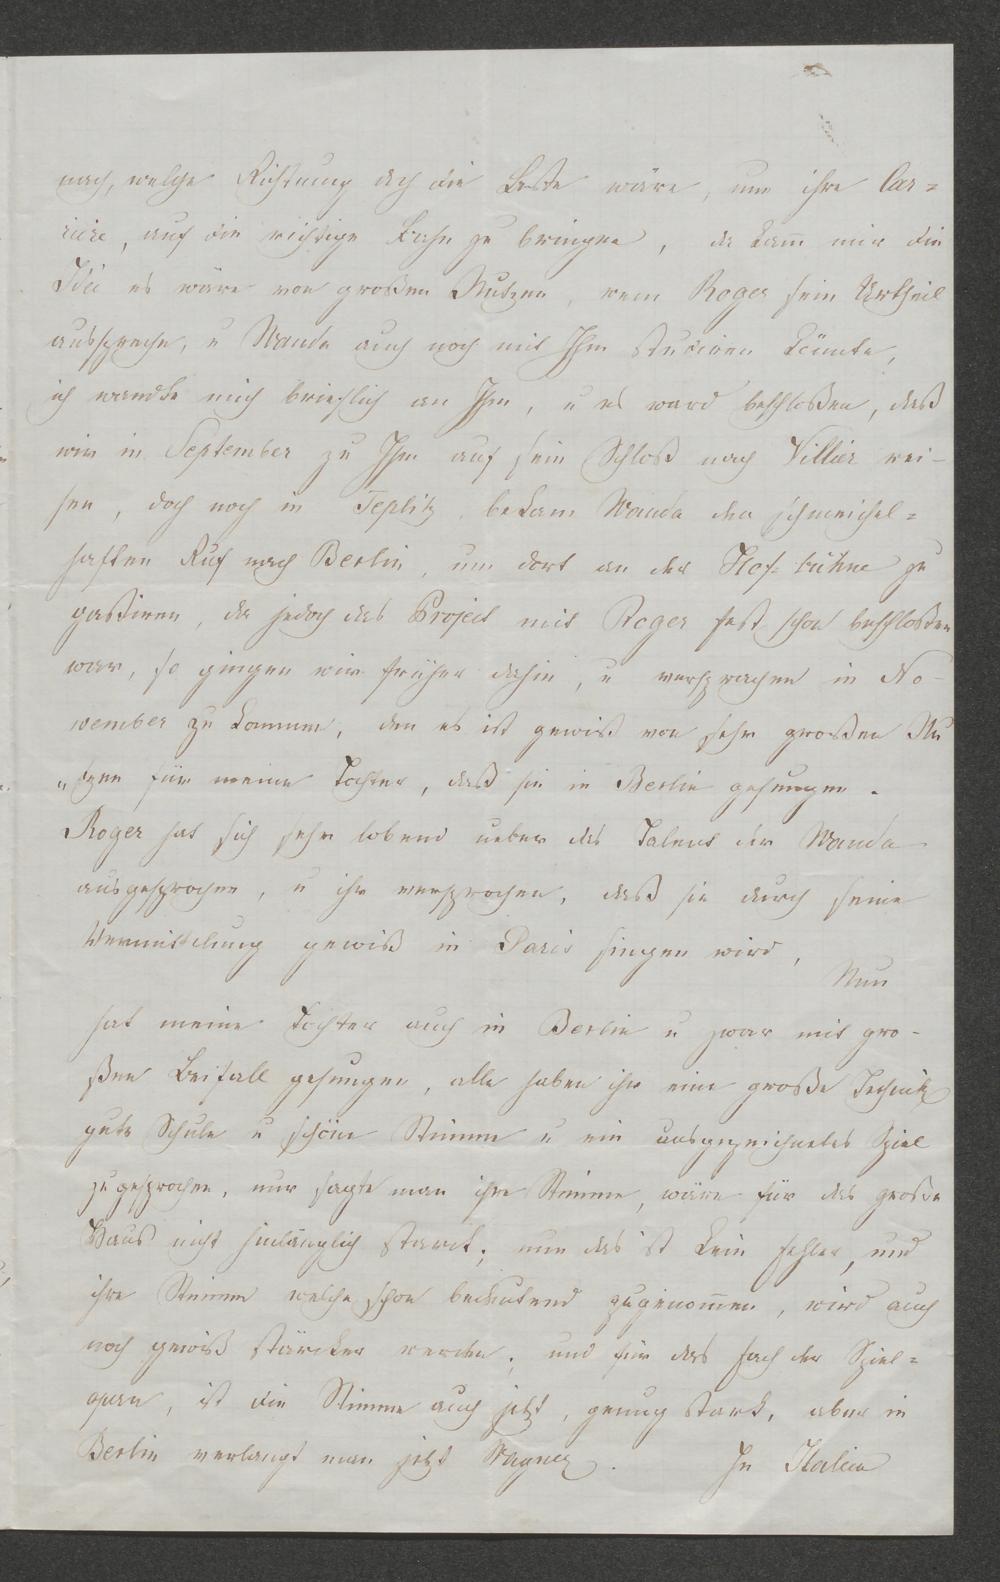 nach, welche Richtung doch die Beste wäre, um ihre Car=
riere, auf die richtige Bahn zu bringen, da kam̅ mir die
Idée es wäre von großen Nutzen, wen Roger sein Urtheil
ausspreche, u Wanda auch noch mit Ihm studiren könnte,
ich wandte mich brieflich an Ihm, u es ward beschloßen, daß
wir in September zu Ihm auf sein Schloß nach Villier rei-
sen, doch noch in Teplitz, bekam Wanda den schmeichel=
haften Ruf nach Berlin, um dort an der Hof=bühne zu
gastiren, da jedoch das Project mit Roger fest schon beschloßen
war, so gingen wir früher dahin, u versprachen in No-
vember zu kommen, den es ist gewiß von sehr großen Nu
"tzen für meine Tochter, daß sie in Berlin gesungen.
Roger hat sich sehr lobend ueber das Talent der Wanda
ausgesprochen, u ihr versprochen, daß sie durch seine
Vermittelung gewiß in Paris singen wird,
Nun
hat meine Tochter auch in Berlin u zwar mit gro-
ßen Beifall gesungen, alle haben ihr eine große Technik
gute Schule u schöne Stimme u ein ausgezeichnetes Spiel
zugesprochen, nur sagte man ihre Stimme, wäre für das große
Haus nicht hinlänglich starck; nun das ist kein Fehler, und
ihre Stimme welche schon bedeutend zugenom̅en, wird auch
noch gewiß stärcker werden; und für das Fach der Spiel=
opern, ist die Stimme auch jetzt, genug stark, aber in
Berlin verlangt man jetzt Wagner. In Italien